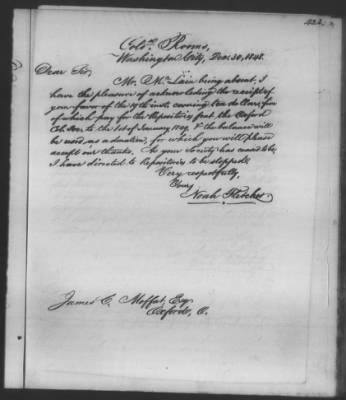 Colo. Rooms,
Washington City, Dec. 30, 1848.
Dear Sir,
Mr. McLain being absent, I
have the pleasure of acknowledging the receipt of
your favor of the 19th inst. covering ten dollars, five
of which pay for the Repository for the Oxford
to the 1st of January 1849, & the balance will
be used as a donation, for which you will please
accept our thanks. As your Society has ceased to be,
I have directed to Repositories to be stopped.
Very respectfully,
Yours,
Noah Fletcher.
James C. Moffat, Esq.
Oxford, O.